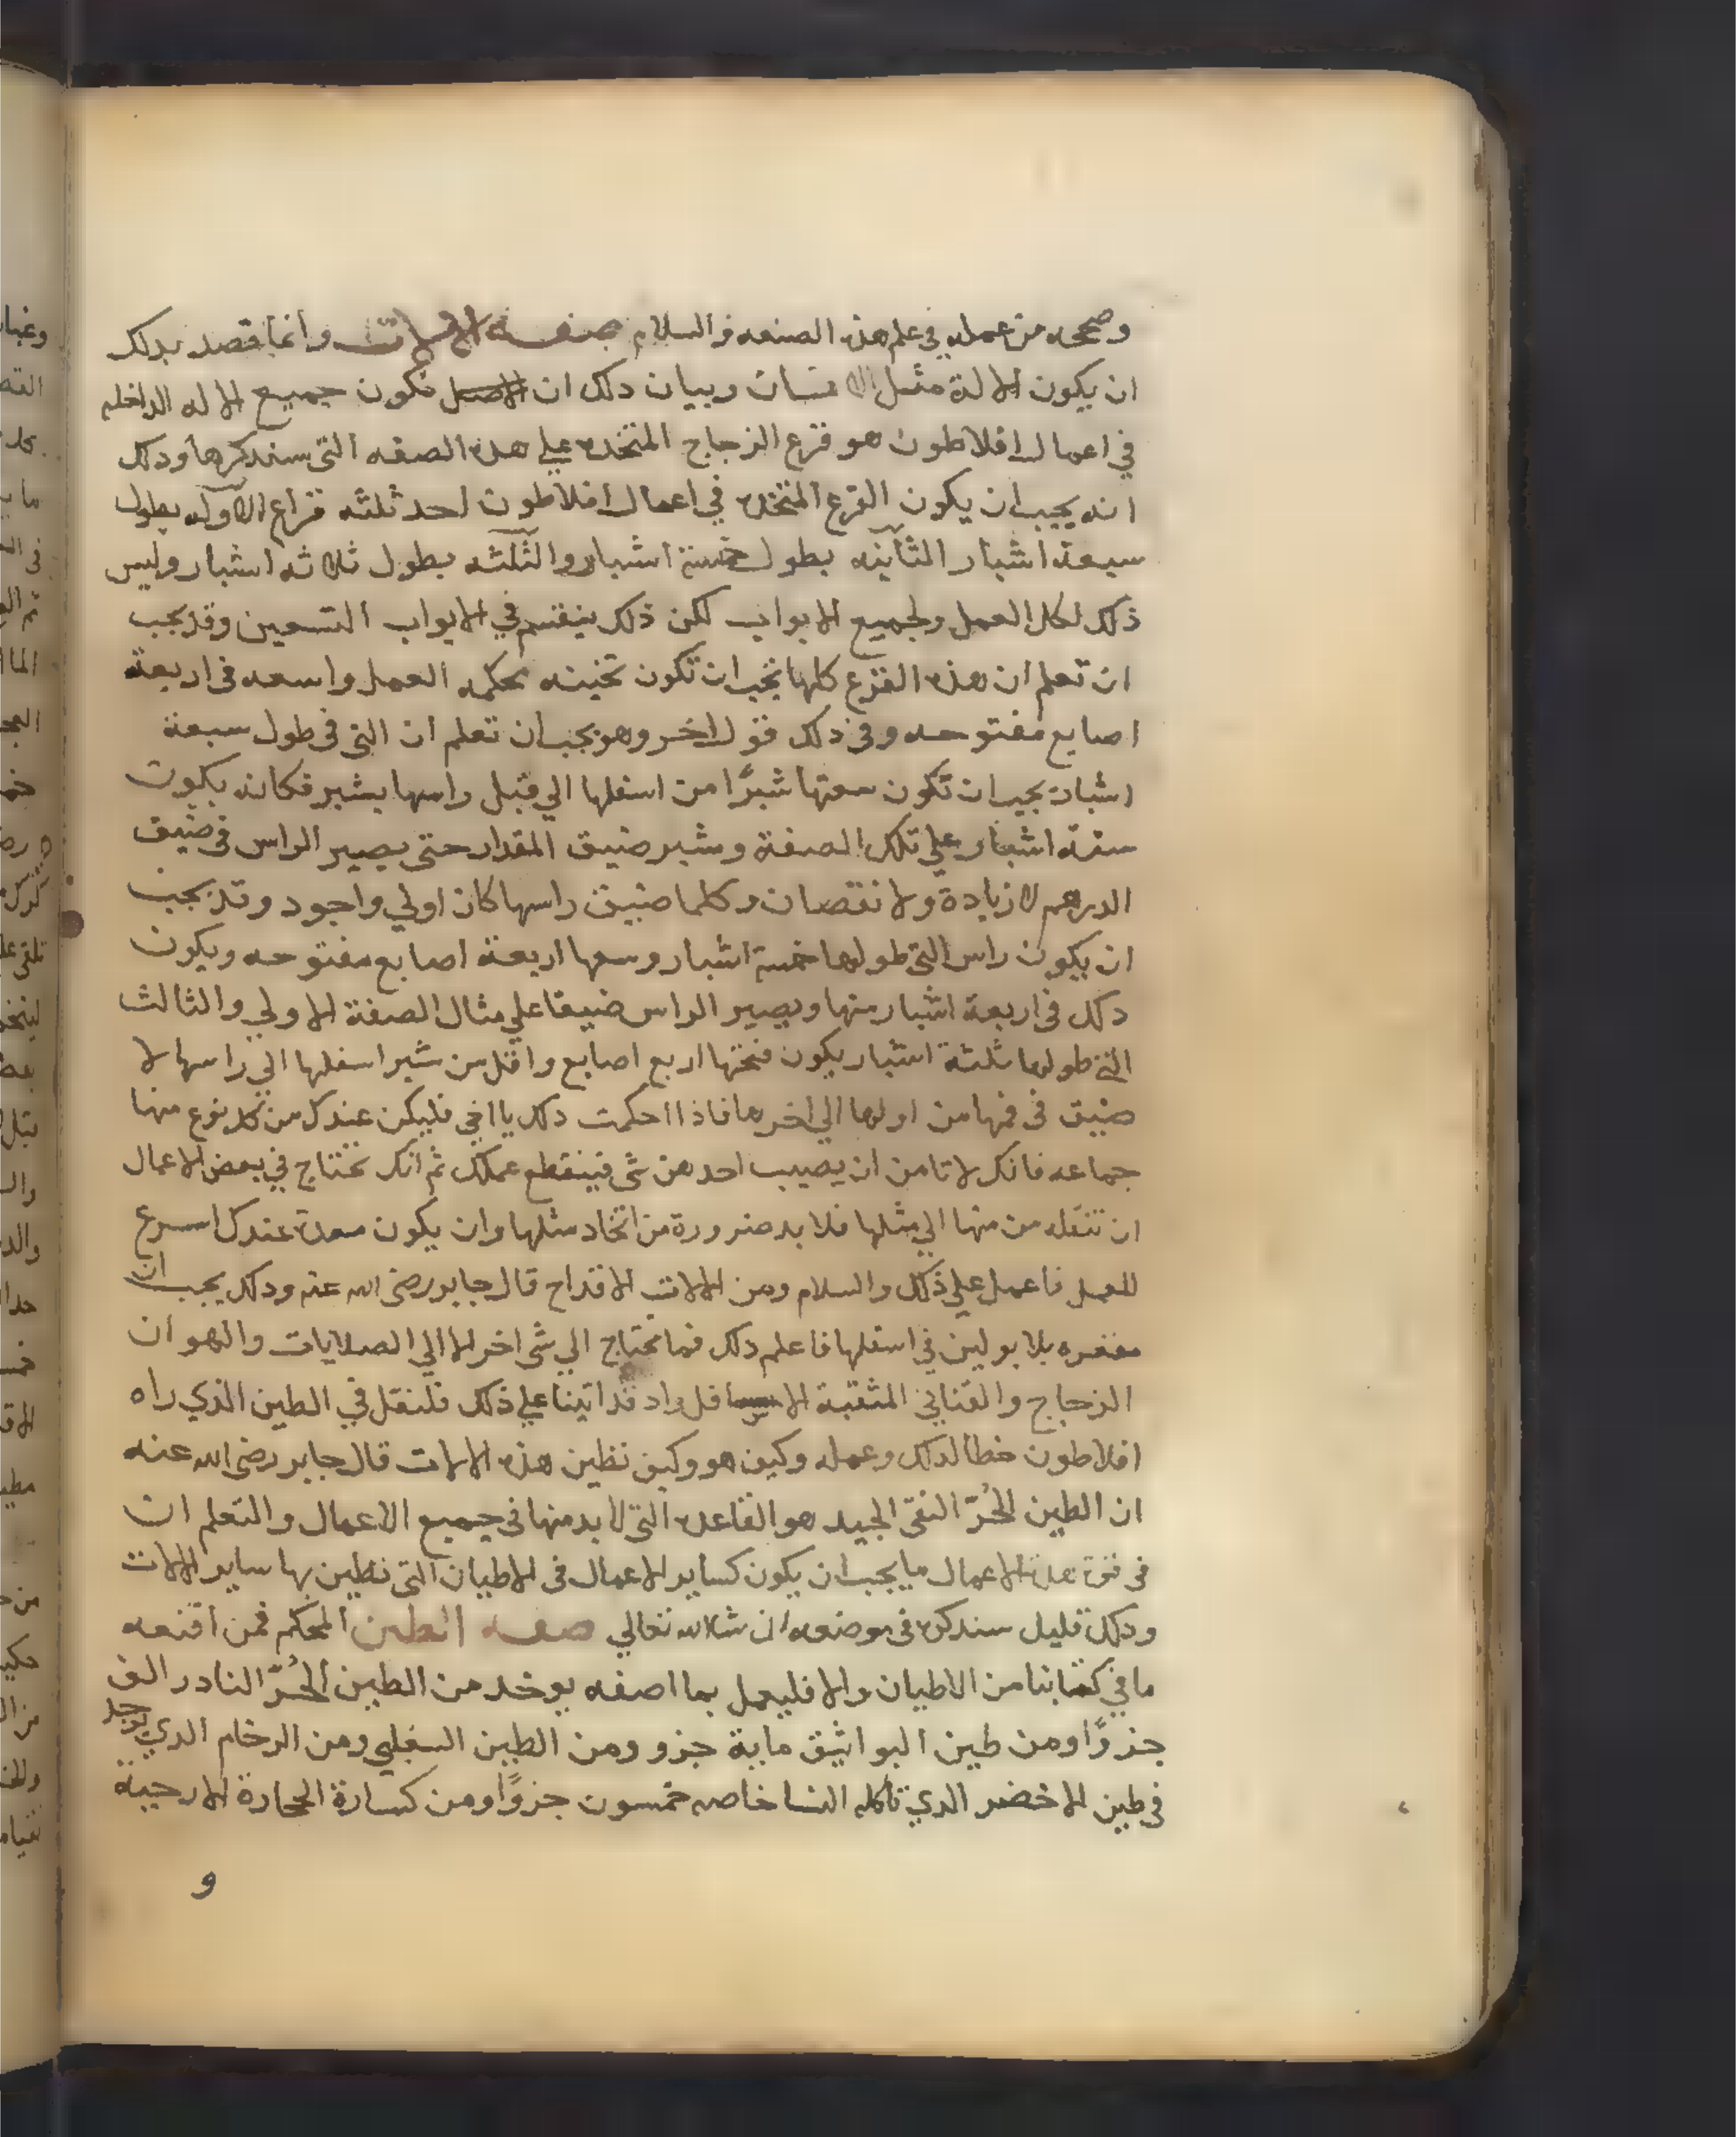 وصححه من عمله في علم هذه الصنعه والسلام صفة الالات وانما قصد بدلك
ان يكون الالة مثل الانسان وبيان دلك ان الاصل تكون جميع الاله الداخله
في اعمال افلاطون هو قرع الزجاج المتخده علي هده الصفه التي سندكرها ودلك
انه يجب ان يكون القرع المتخده في اعمال افلاطون احد ثلثه قراع الاوله بطول
سبعة اشبار الثانيه بطول خمسة اشبار والثلثه بطول ثلاثه اشبار وليس
ذلك لكل العمل ولجميع الابواب لكن ذلك ينقسم في الابواب التسعين وقد يجب
ان تعلم ان هذه القرع كلها يجب ان تكون تخينه محكمه العمل واسعه في اربعة
اصابع مفتوحه وفي ذلك قول اخر وهو يجب ان تعلم ان التي في طول سبعة
اشبار يجب ان تكون سعتها شبرًا من اسفلها الي قبل راسها بشبر فكانه يكون
ستة اشبار علي تلك الصفة وشبر ضيق المقدار حتي يصير الراس في ضيق
الدرهم لا زيادة ولا نقصان وكلما ضيق راسها كان اولي واجود وقد يجب
ان يكون راس التي طولها خمسة اشبار وسعها اربعة اصابع مفتوحه ويكون
دلك في اربعة اشبار منها ويصير الراس ضيقا علي مثال الصفة الاولي والثالث
التي طولها ثلثة اشبار يكون فتحتها اربع اصابع واقل من شبر اسفلها الي راسها لا
ضيق في فمها من اولها الي اخرها فاذا احكمت دلك يا اخي فليكن عندك من كل نوع منها
جماعه فانك لا تامن ان يصيب احدهن شي فينقطع عملك ثم انك تحتاج في بعض الاعمال
ان تنقله من منها الي مثلها فلا بد ضرورة من اتخاد مثلها وان يكون معدة عندك اسرع
للعمل فاعمل علي ذلك والسلام ومن الالات الاقداح قال جابر رضي الله عنه ودلك يجب ان
مقعره بلا بولين في اسفلها فاعلم دلك فما تحتاج الي شي اخر الا الي الصلايات والهوان
الزجاج والقناني المثقبة قد اتينا علي ذلك فلنقل في الطين الذي راه
افلاطون خطا لدلك وعمله وكيف هو وكيف نطين هذه الالات قال جابر رضي الله عنه
ان الطين الحُرّ النقي الجيد هو القاعده التي لا بد منها في جميع الاعمال والتعلم ان
في هذه الاعمال ما يجب ان يكون كساير الاعمال في الاطيان التي نطين بها ساير الالات
ودلك قليل سندكره في موضعه ان شا الله تعالي صفه الطين المحكم فمن اقنعه
ما في كتابنا من الاطيان والا فليعمل بما اصفه يوخد من الطين الحُرّ النادر الف
جزوًا ومن طين البواثيق ماية جزو ومن الطين السفلي ومن الرخام الدي يوجد
في طين الاخضر الدي تاكله النسا خاصه خمسون جزوًا ومن كسارة الحجارة الارحية
و